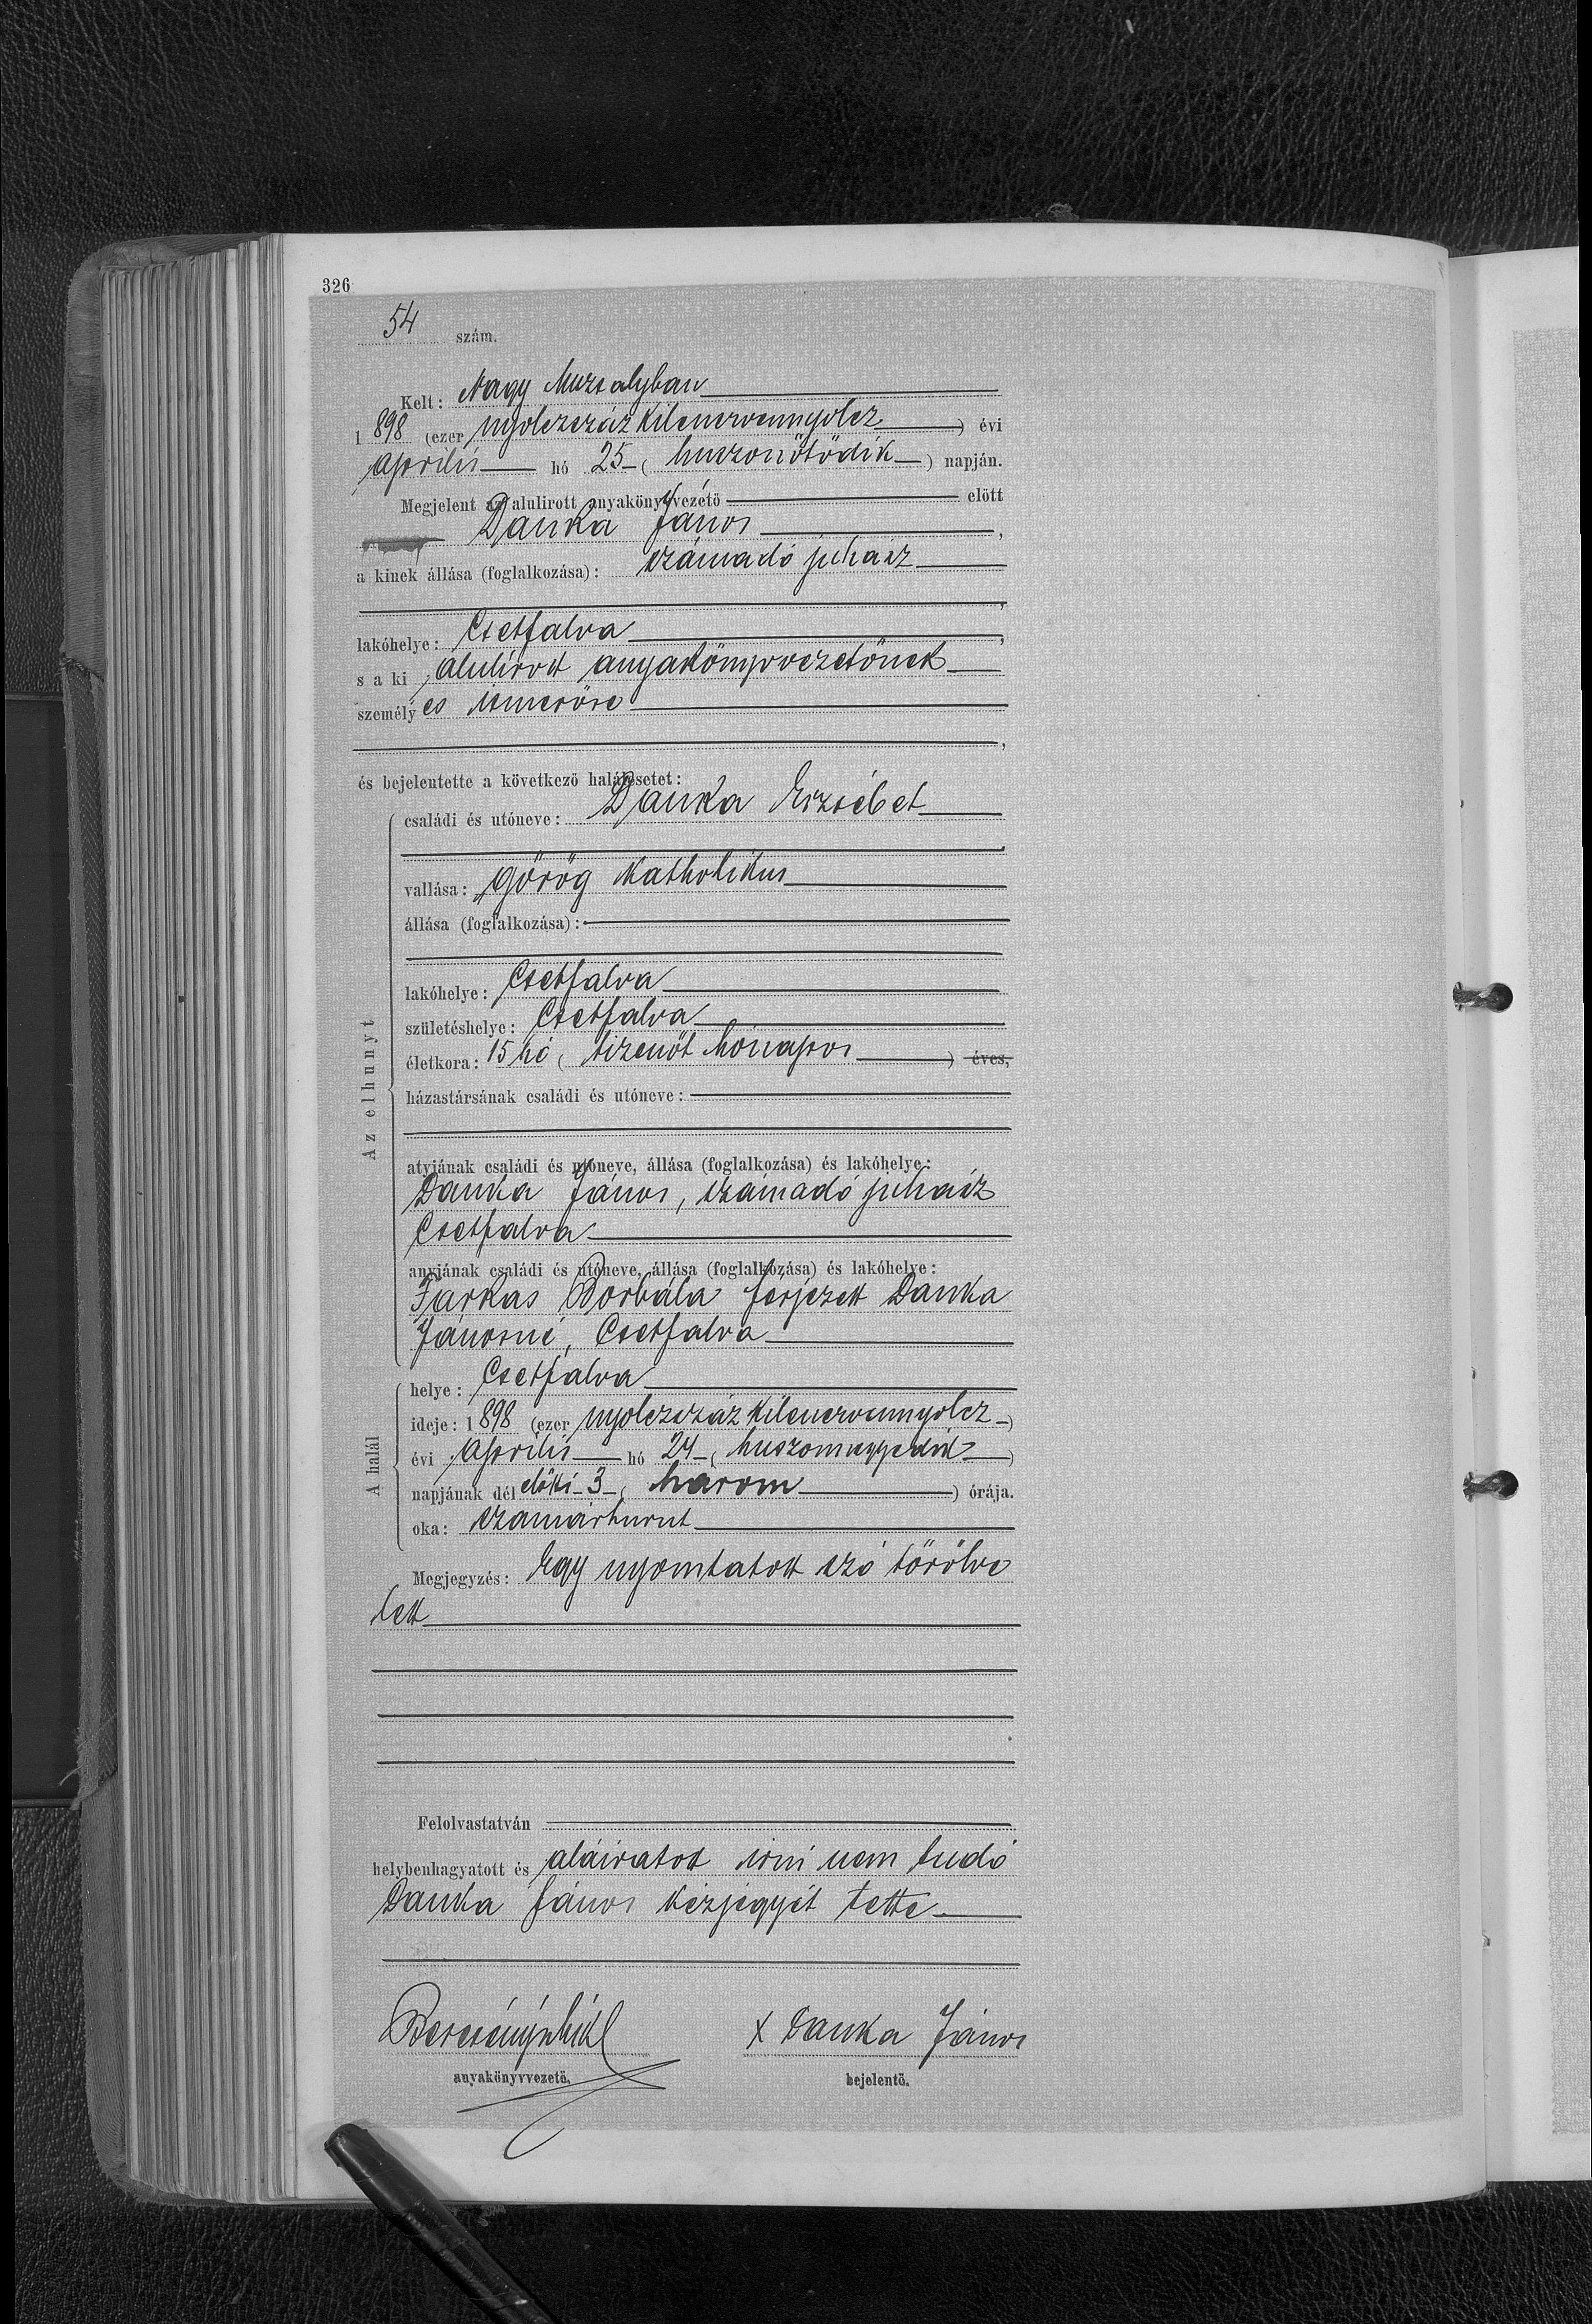 326
54 szám.
Kelt: Nagy Muzsalyban
1898 (ezer nyolczszáz kilenczvennyolcz) évi
április hó 25 (huszonötödik) napján.
Megjelent az alulirott anyakönyvvezető előtt
Danka János,
a kinek állása (foglalkozása): számadó juhász
,
lakóhelye: Csetfalva,
s a ki alulírott anyakönyvvezetőnek
személyes ismerőse
,
és bejelentette a következő halálesetet:
Az elhunyt
családi és utóneve: Danka Erzsébet
,
vallása: görög katholikus
állása (foglalkozása):
lakóhelye: Csetfalva
születéshelye: Csetfalva
életkora: 15 hó (tizenöt hónapos) éves,
házastársának családi és utóneve:
atyjának családi és utóneve, állása (foglalkozása) és lakóhelye:
Danka János, számadó juhász
Csetfalva
anyjának családi és utóneve, állása (foglalkozása) és lakóhelye:
Farkas Borbála férjezett Danka
Jánosné, Csetfalva
A halál
helye: Csetfalva
ideje: 1898 (ezer nyolczszáz kilenczvennyolcz)
évi április hó 24 (huszonnegyedik)
napjának dél előtti 3 (három) órája.
oka: szamárhurut
Megjegyzés: Egy nyomtatott szó törölve
lett
Felolvastatván
helybenhagyatott és aláiratott irni nem tudó
Danka János kézjegyét tette
x Danka János
anyakönyvvezető. bejelentő.